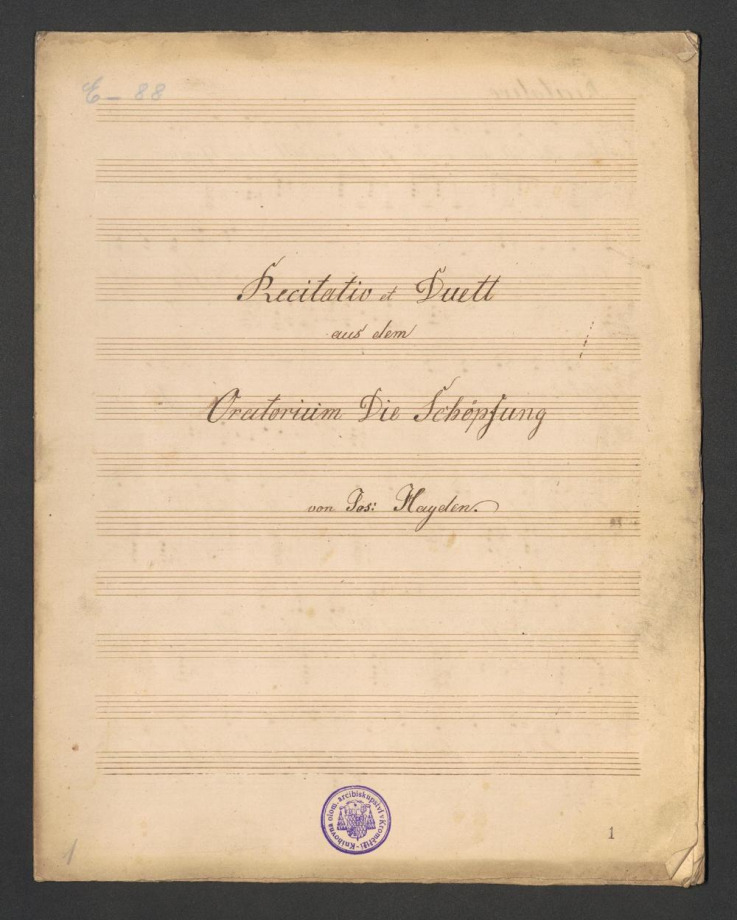 E – 88
Recitatio et Duett
aus dem
Oratorium Die Schöpfung
von Jos: Hayden.
Knihovna olom. arcibiskupství v Kroměříži
1
1